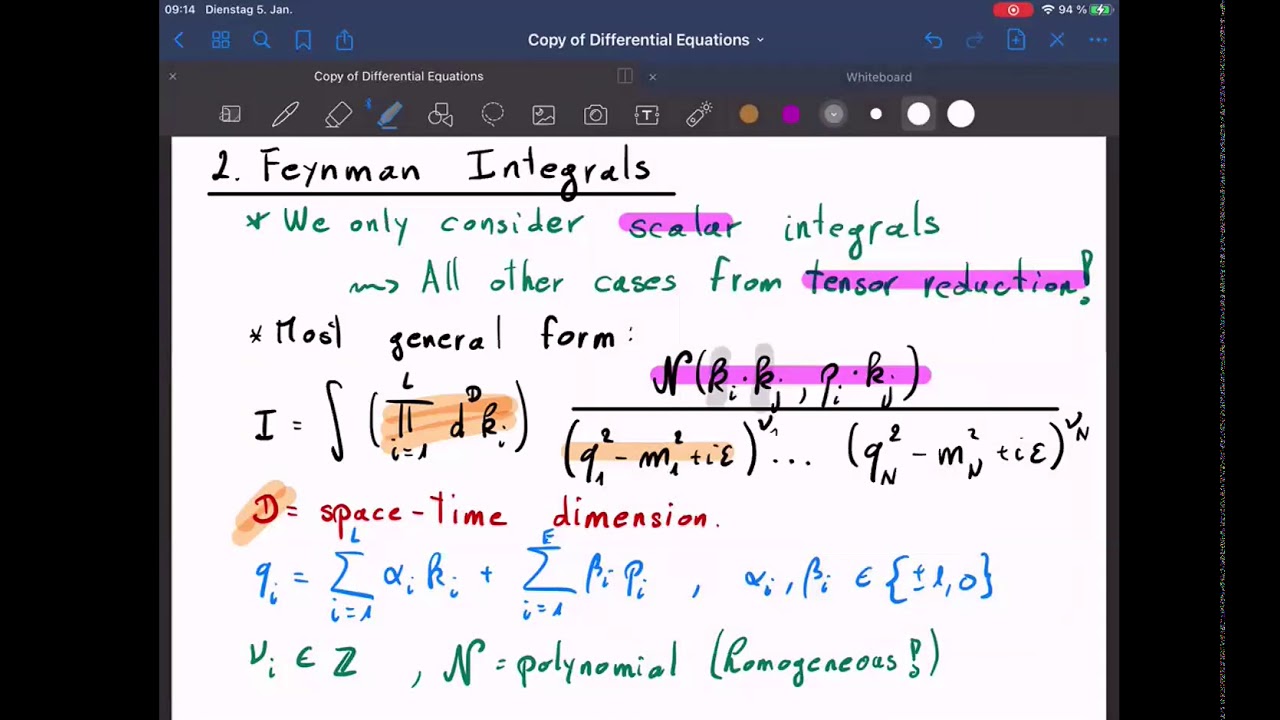 09:14 Dienstag 5. Jan. 94 %
Copy of Differential Equations
Copy of Differential Equations Whiteboard
2. Feynman Integrals
* We only consider scalar integrals
⇝ All other cases from tensor reduction!
* Most general form:
I = ∫ (∏_{i=1}^{L} d^D k_i) N(k_i·k_j, p_i·k_j) / ((q_1^2 - m_1^2 + iε)^{ν_1} ... (q_N^2 - m_N^2 + iε)^{ν_N})
D = space-time dimension.
q_i = ∑_{i=1}^{L} α_i k_i + ∑_{i=1}^{E} β_i p_i , α_i, β_i ∈ {±1, 0}
ν_i ∈ ℤ , N = polynomial (homogeneous!)